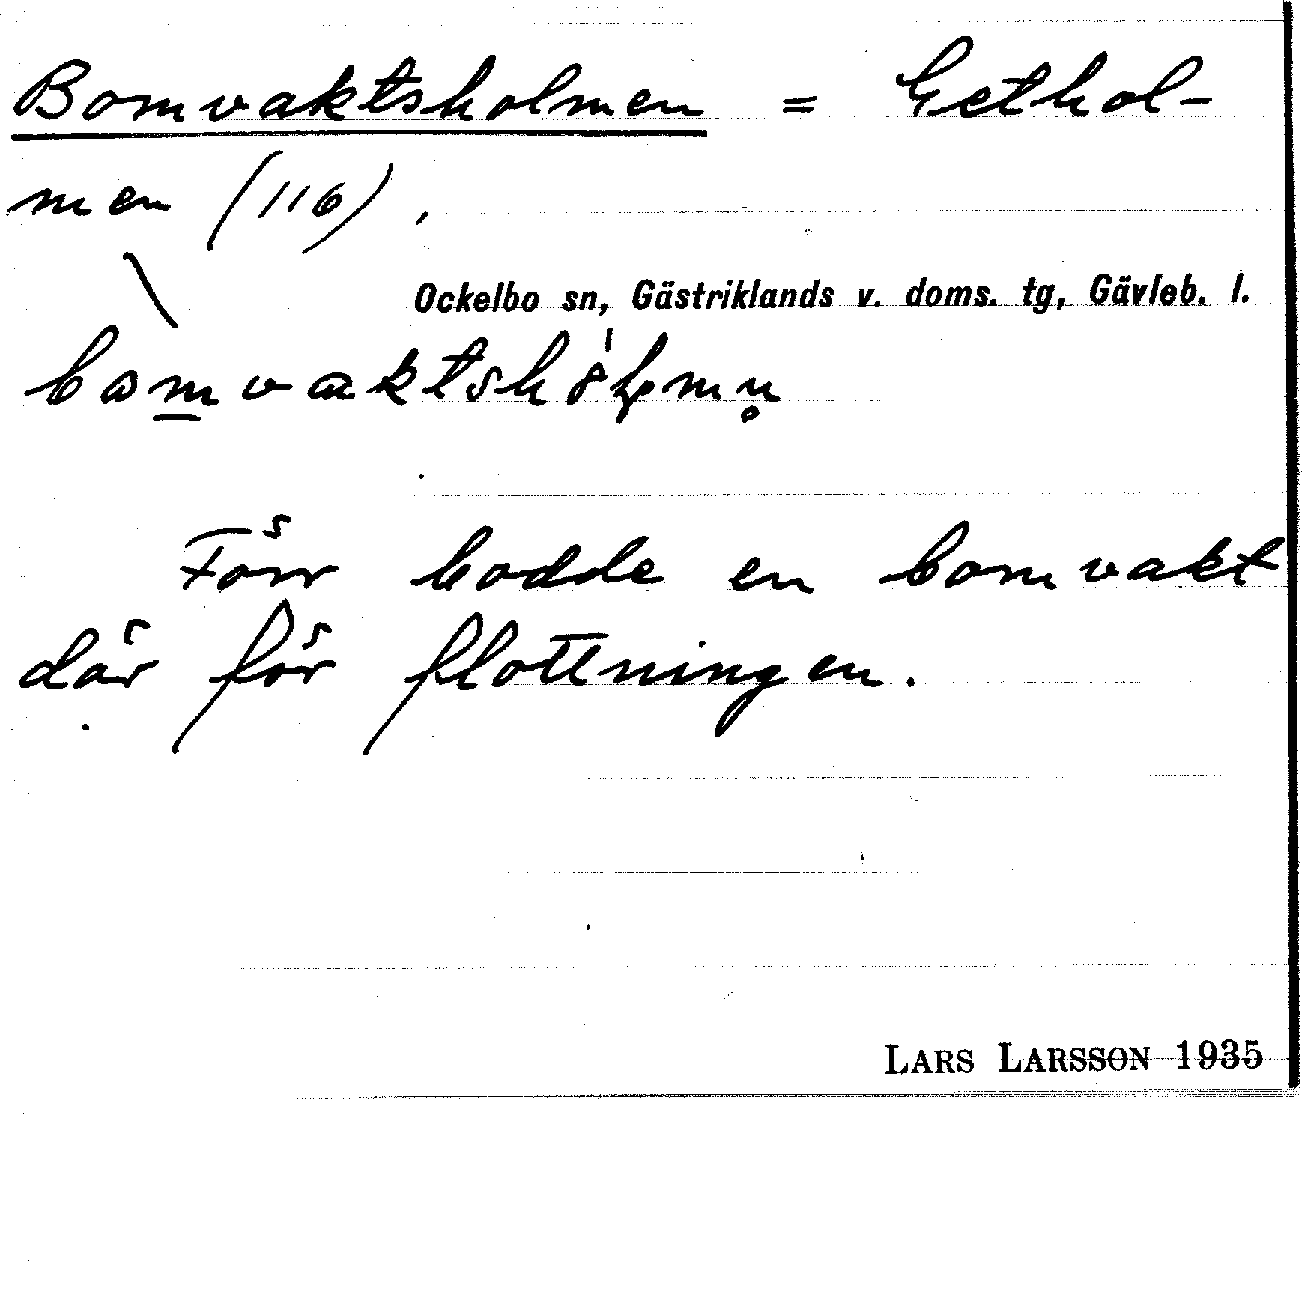 Bomvaktsholmen = Gethol-
men (116).
Ockelbo sn, Gästriklands v. doms. tg, Gävleb. l.
Förr bodde en bomvakt
där för flottningen.
LARS LARSSON 1935